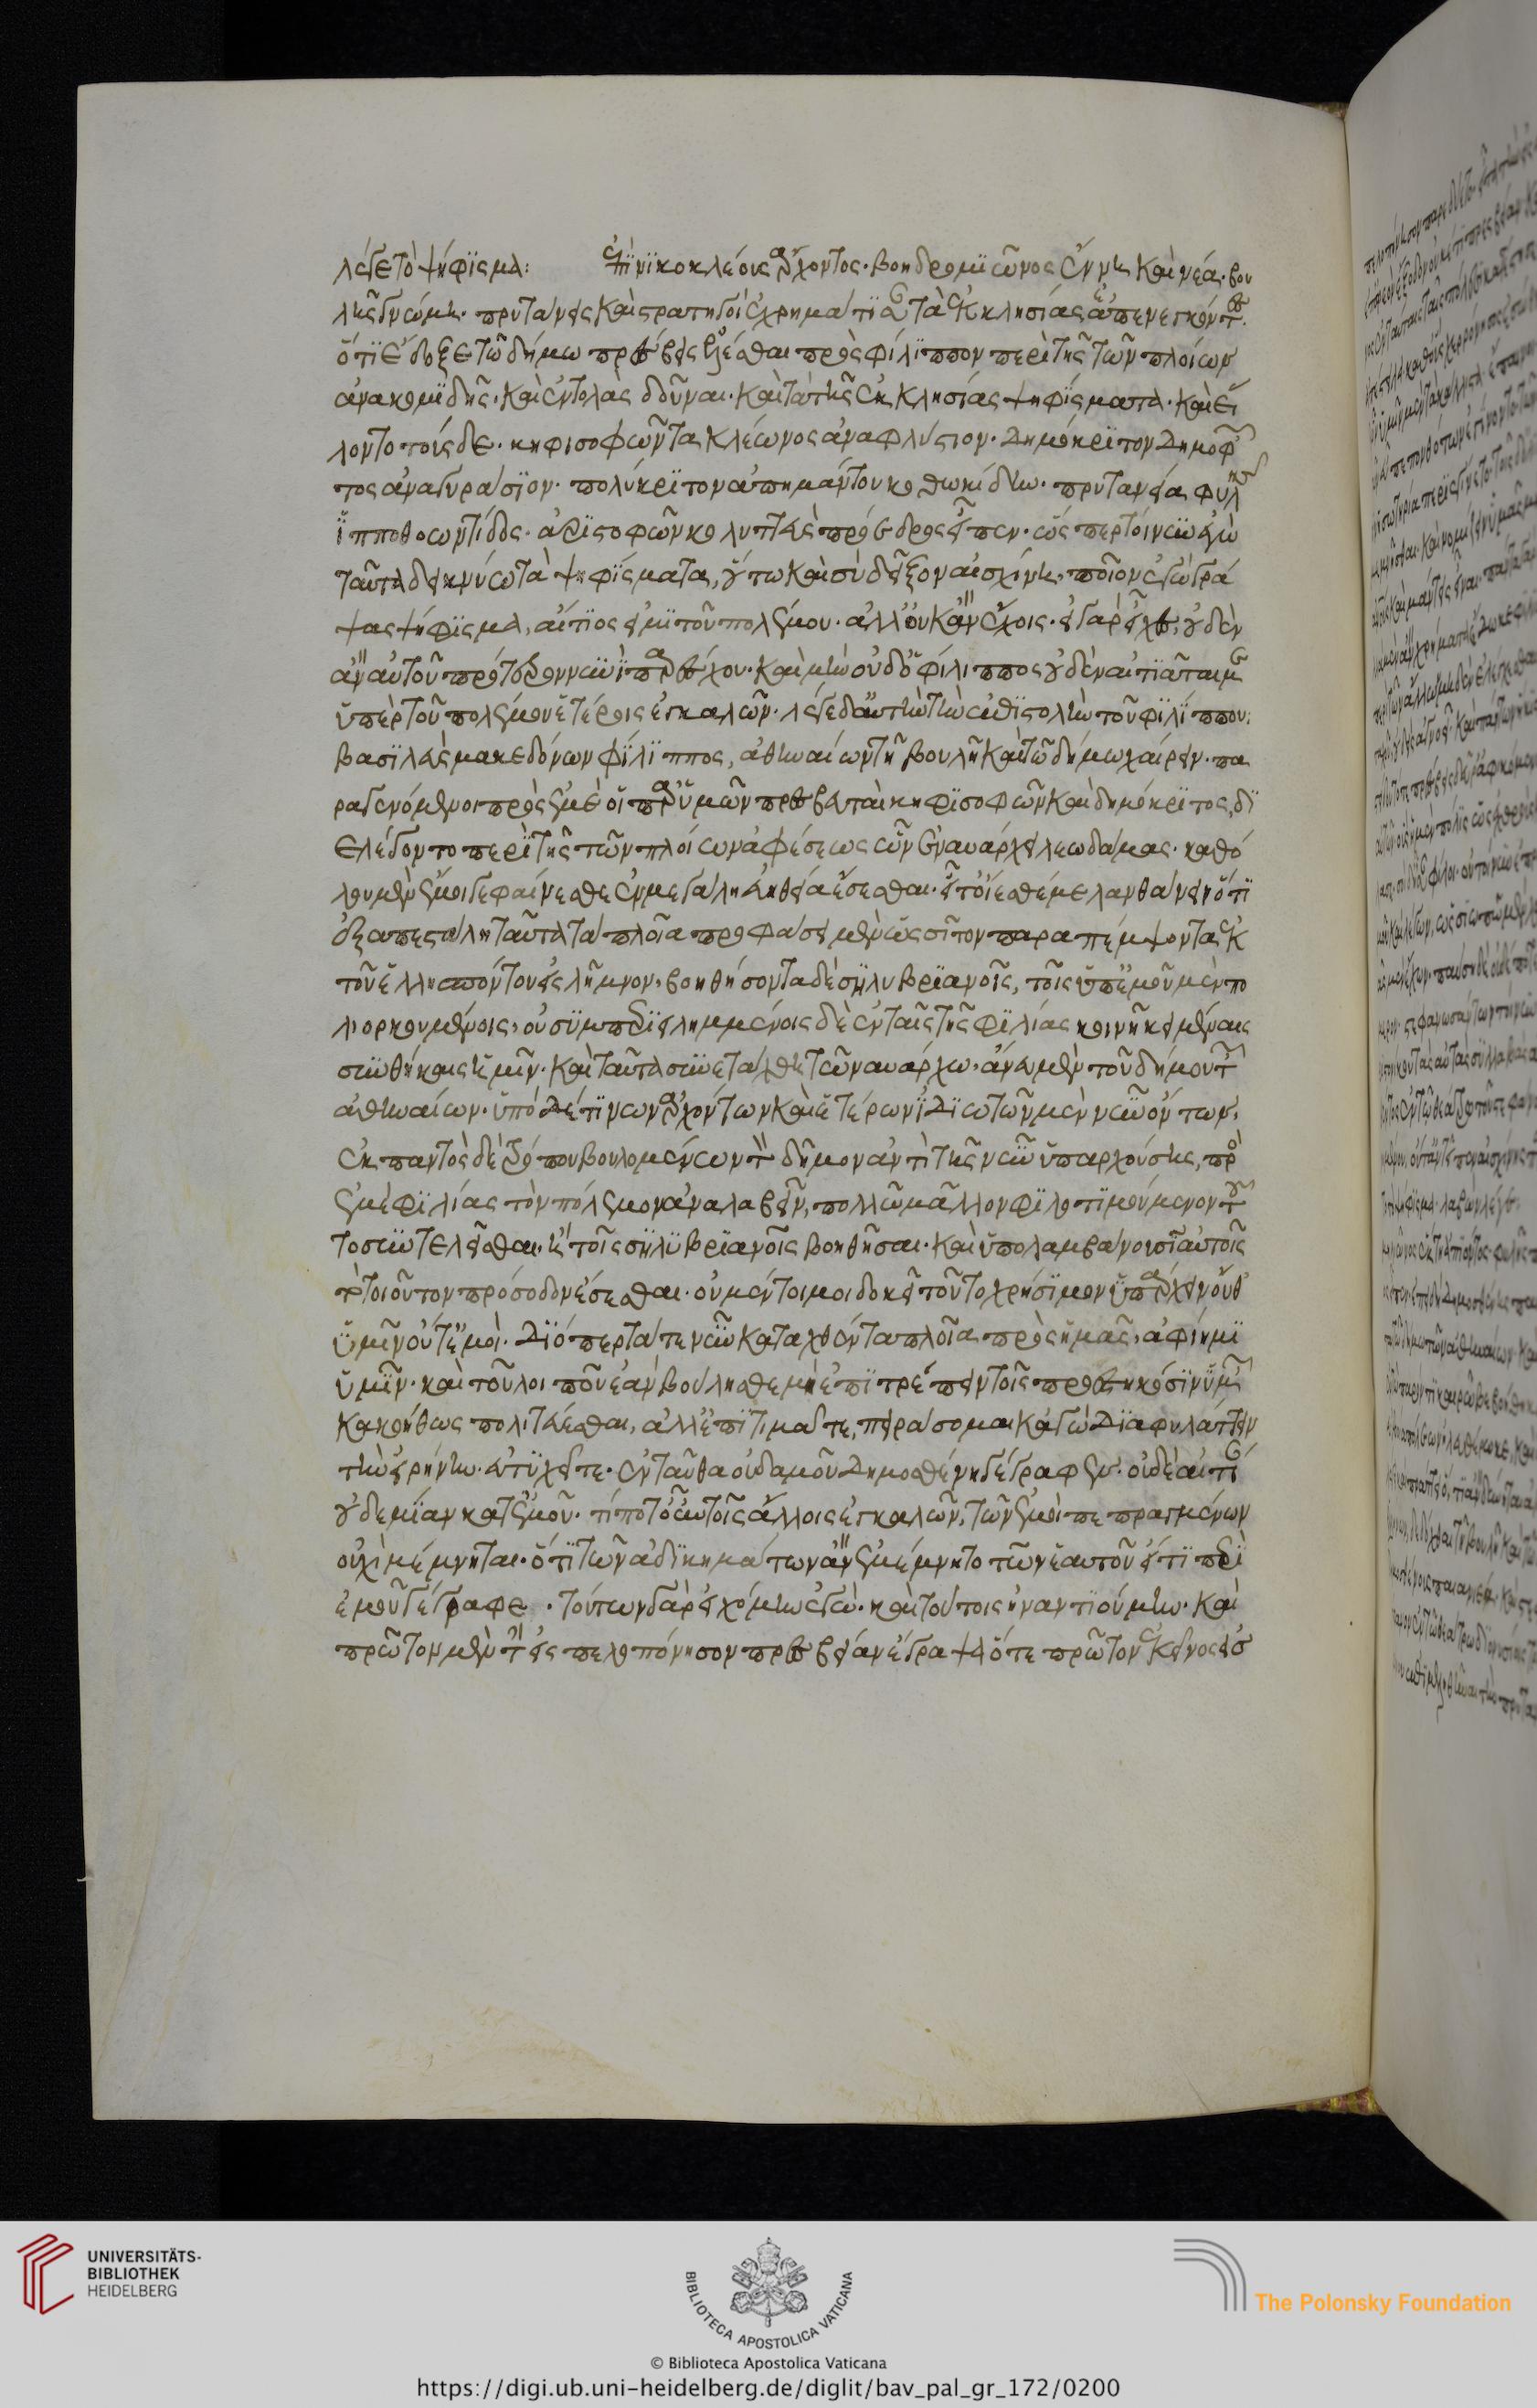 λέγε τὸ ψήφϊσμα: ἐπὶ νϊκοκλέοις ἄρχοντος· βοηδρομϊῶνος ἕνηι καὶ νέα· βου
λῆς γνώμη· πρυτάνεις καὶ στρατηγοὶ ἐχρημάτϊσαν τὰ ἐκ κλησίας ἀπενεγκόντες·
ὅτϊ ἔδοξε τῶ δήμω πρέσβεις ἑλέσθαι πρὸς φίλϊππον περὶ τῆς τῶν πλοίων
ἀνακομϊδῆς· καὶ ἐντολὰς δοῦναι· κατὰ τῆς ἐκκλησίας ψηφίσματα· καὶ εἵ
λοντο τούσδε· κηφισοφῶντα κλέωνος ἀναφλύστιον· δημόκριτον δημοφῶν
τος ἀναγυράσϊον· πολύκρϊτον ἀπημάντου κοθωκίδην· πρυτανεία φυλῆς
ἵπποθοωντίδος· ἀρϊστοφῶν κολυττεὺς πρόεδρος εἶπεν· ὥσπερ τοίνυν ἐγὼ
ταῦτα δεικνύω τὰ ψηφίσματα, οὕτω καὶ σὺ δεῖξον αἰσχίνη, ποῖον ἐγὼ γρά
ψας ψήφϊσμα, αἴτϊος εἰμϊ τοῦ πολέμου· ἀλλ' οὐκ ἂν ἔχοις· εἰ γὰρ εἶχες, οὐδὲν
ἂν αὐτοῦ πρότερον νυνϊ παρέσχου· καὶ μὴν οὐδ' ὁ φίλιππος οὐδὲν αἰτϊᾶται με
ὑπὲρ τοῦ πολέμου ἑτέροις ἐγκαλῶν· λέγε δ' αὐτὴν τὴν ἐπϊστολὴν τοῦ φϊλίππου:
βασϊλεὺς μακεδόνων φίλϊππος, ἀθηναίων τῆ βουλῆ καὶ τῶ δήμω χαίρειν· πα
ραγενόμενοι πρὸς ἐμὲ οἱ παρ' ὑμῶν πρεσβευταὶ κηφϊσοφῶν καὶ δημόκρϊτος, δϊ
ελέγοντο περὶ τῆς τῶν πλοίων ἀφέσεως ὧν ἐναυάρχει λεωδάμας· καθό
λου μὲν ἔμοιγε φαίνεσθε ἐν μεγάλη εὐηθεία ἔσεσθαι· εἴ τ' οἴεσθε με λανθάνειν ὅτϊ
ἐξαπεστάλη ταῦτα τὰ πλοῖα πρόφασι μὲν ὡς σῖτον παραπέμψοντα ἐκ
τοῦ ἑλλησπόντου εἰς λῆμνον, βοηθήσοντα δὲ σηλυβρϊανοῖς, τοῖς ὑπ' ἐμοῦ μὲν πο
λιορκουμένοις, οὐ συμπερϊειλημμένοις δὲ ἐν ταῖς τῆς φϊλίας κοινῆ κειμέναις
συνθήκαις ἡμῖν· καὶ ταῦτα συνετάχθη τῶ ναυάρχω, ἄνευ μὲν τοῦ δήμου τῶν
ἀθηναίων· ὑπὸ δέ τϊνων ἀρχόντων καὶ ἑτέρων ἰδϊωτῶν μὲν νῦν ὄντων,
ἐκ παντὸς δὲ τρόπου βουλομένων τὸν δῆμον ἀντὶ τῆς νῦν ὑπαρχούσης, πρὸς
ἐμὲ φϊλίας τὸν πόλεμον ἀναλαβεῖν, πολλῶ μᾶλλον φϊλοτϊμουμένων τοῦ
το συντελεῖσθαι, ἢ τοῖς σηλυβρϊανοῖς βοηθῆσαι· καὶ ὑπολαμβάνουσιν αὐτοῖς
τὸ τοιοῦτον πρόσοδον ἔσεσθαι· οὐ μέντοι μοι δοκεῖ τοῦτο χρήσϊμον ὑπάρχειν οὔθ'
ὑμῖν οὔτ' ἐμοί· δϊόπερ τά τε νῦν καταχθέντα πλοῖα πρὸς ἡμᾶς, ἀφίημϊ
ὑμῖν· καὶ τοῦ λοιποῦ ἐὰν βούλησθε μὴ ἐπϊτρέπειν τοῖς προεστηκόσϊν ὑμῶν
κακοήθως πολιτεύεσθαι, ἀλλ' ἐπϊτιμᾶτε, πειράσομαι κἀγὼ δϊαφυλάττειν
τὴν εἰρήνην· εὐτυχεῖτε· ἐνταῦθα οὐδαμοῦ δημοσθένη γέγραφεν· οὐδὲ αἰτίαν
οὐδεμίαν κατ' ἐμοῦ· τί ποτ' οὖν τοῖς ἄλλοις ἐγκαλῶν, τῶν ἐμοὶ πεπραγμένων
οὐχὶ μέμνηται· ὅτϊ τῶν ἀδϊκημάτων ἂν ἐμέμνητο τῶν ἑαυτοῦ εἴ τϊ περὶ
ἐμοῦ γέγραφε· τούτων γὰρ εἰχόμην ἐγώ· καὶ τούτοις ἠναντϊούμην· καὶ
πρῶτον μὲν τὴν εἰς πελοπόννησον πρεσβείαν ἔγραψα ὅτε πρῶτον ἐκεῖνος εἰσ
UNIVERSITÄTS-
BIBLIOTHEK
HEIDELBERG
BIBLIOTECA APOSTOLICA VATICANA
The Polonsky Foundation
© Biblioteca Apostolica Vaticana
https://digi.ub.uni-heidelberg.de/diglit/bav_pal_gr_172/0200